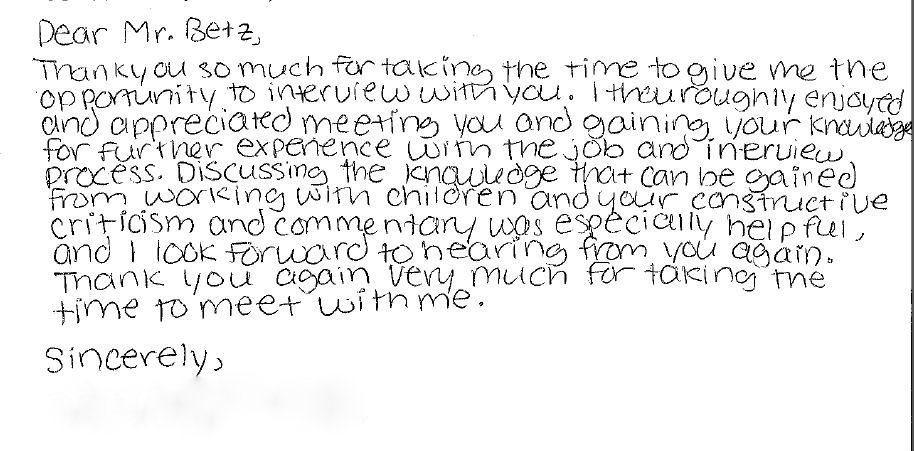 Dear Mr. Betz,
Thankyou so much for taking the time to give me the
opportunity to interview with you. I thouroughly enjoyed
and appreciated meeting you and gaining your knowledge
for further experience with the job and inerview
process. Discussing the knowledge that can be gained
from working with children and your constructive
criticism and commentary was especially helpful,
and I look forward to hearing from you again.
Thank you again very much for taking the
time to meet with me.
Sincerely,